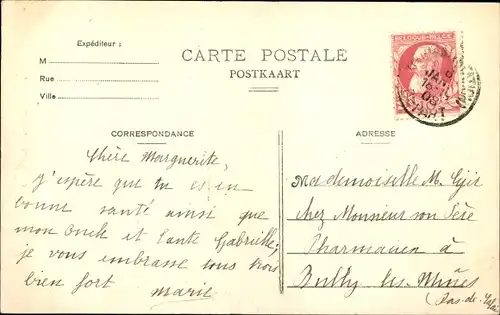 Expéditeur :
M
Rue
Ville
CARTE POSTALE
POSTKAART
BELGIQUE
JAN
08
DEPART
CORRESPONDANCE
ADRESSE
Chère Marguerite,
j'espère que tu es en
bonne santé ainsi que
mon Oncle et tante Gabrielle;
je vous embrasse tous trois
bien fort
Marie
Mademoiselle M.
chez Monsieur son Père
Pharmacien à
Bully les Mines
(Pas-de-Calais